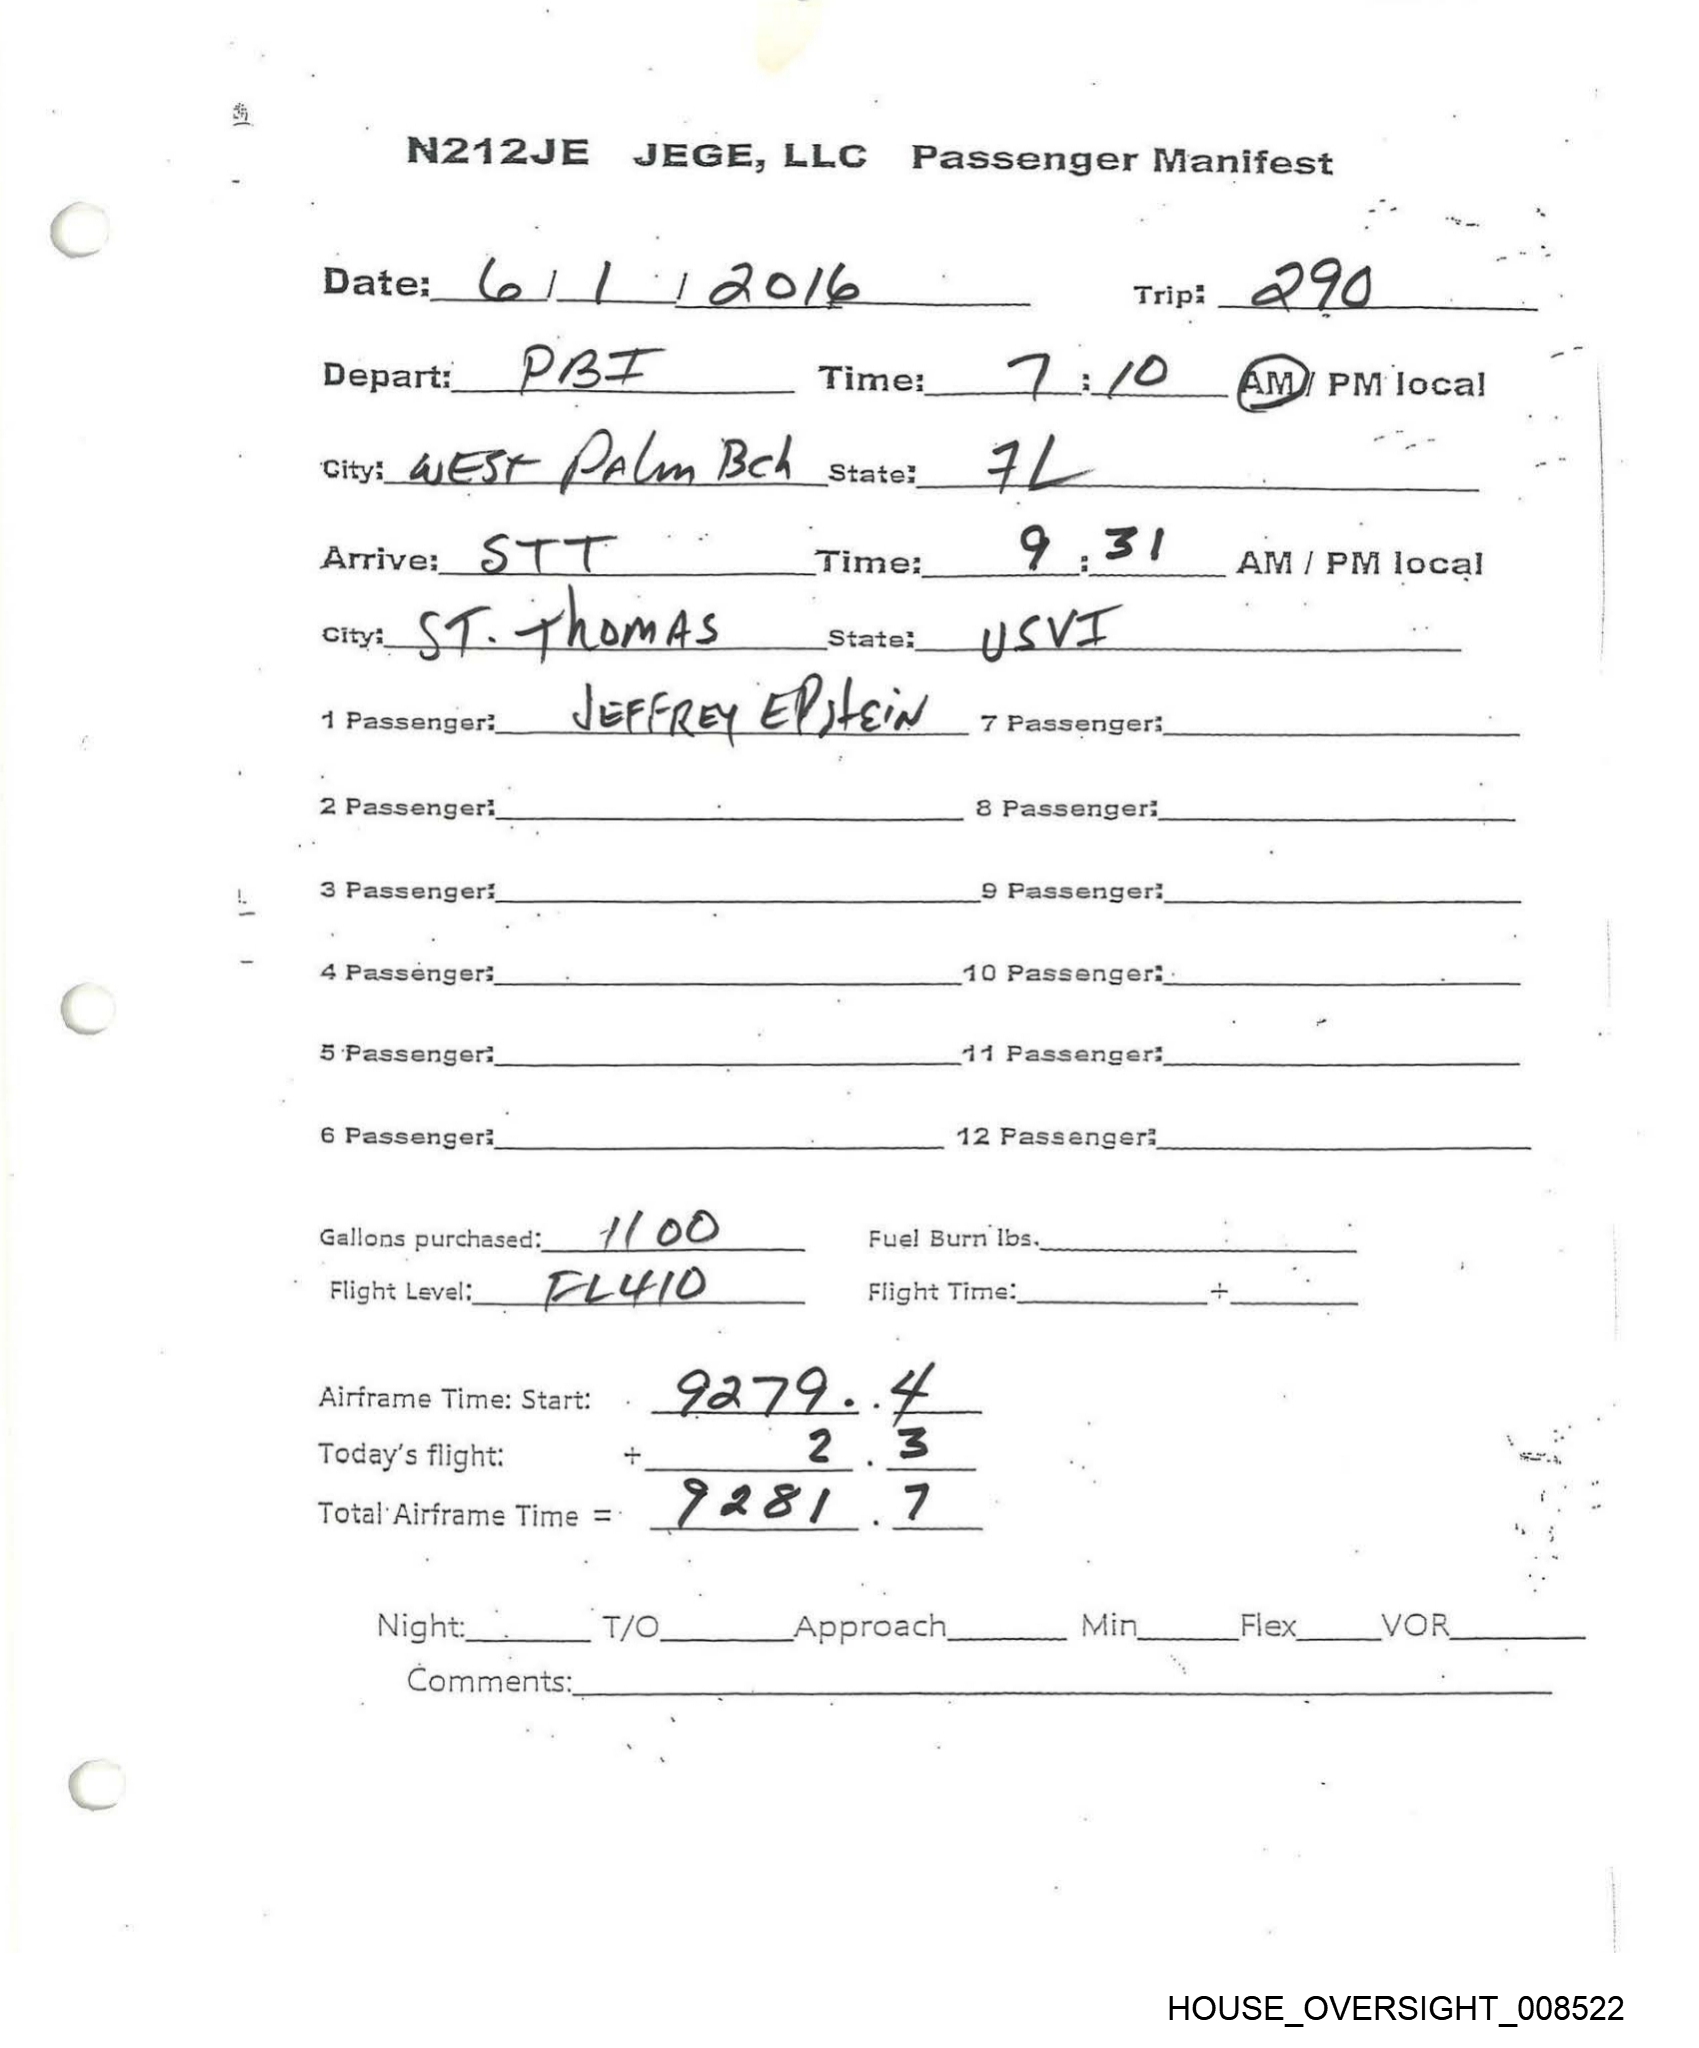 N212JE JEGE, LLC Passenger Manifest
Date: 6 / 1 / 2016 Trip: 290
Depart: PBI Time: 7 : 10 AM / PM local
City: WEST Palm Bch State: FL
Arrive: STT Time: 9 : 31 AM / PM local
City: ST. Thomas State: USVI
1 Passenger: JEFFREY EPstEiN 7 Passenger:
2 Passenger: 8 Passenger:
3 Passenger: 9 Passenger:
4 Passenger: 10 Passenger:
5 Passenger: 11 Passenger:
6 Passenger: 12 Passenger:
Gallons purchased: 1100 Fuel Burn lbs.
Flight Level: FL410 Flight Time: +
Airframe Time: Start: 9279 . 4
Today's flight: + 2 . 3
Total Airframe Time = 9281 . 7
Night: T/O Approach Min Flex VOR
Comments:
HOUSE_OVERSIGHT_008522